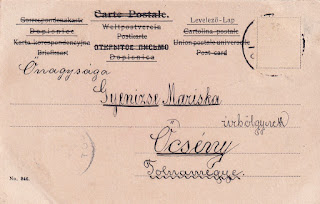 Carte Postale.
Correspondenzkarte Weltpostverein Levelező-Lap
Dopisnice Postkarte Cartolina postale
Karta korespondencyjna ОТКРЫТОЕ ПИСЬМО Union postale universelle
Briefkaart Dopisnica Post-card
Őnagysága
Gyenizse Mariska
úrhölgynek
Őcsény
Tolnamegye.
No. 846.